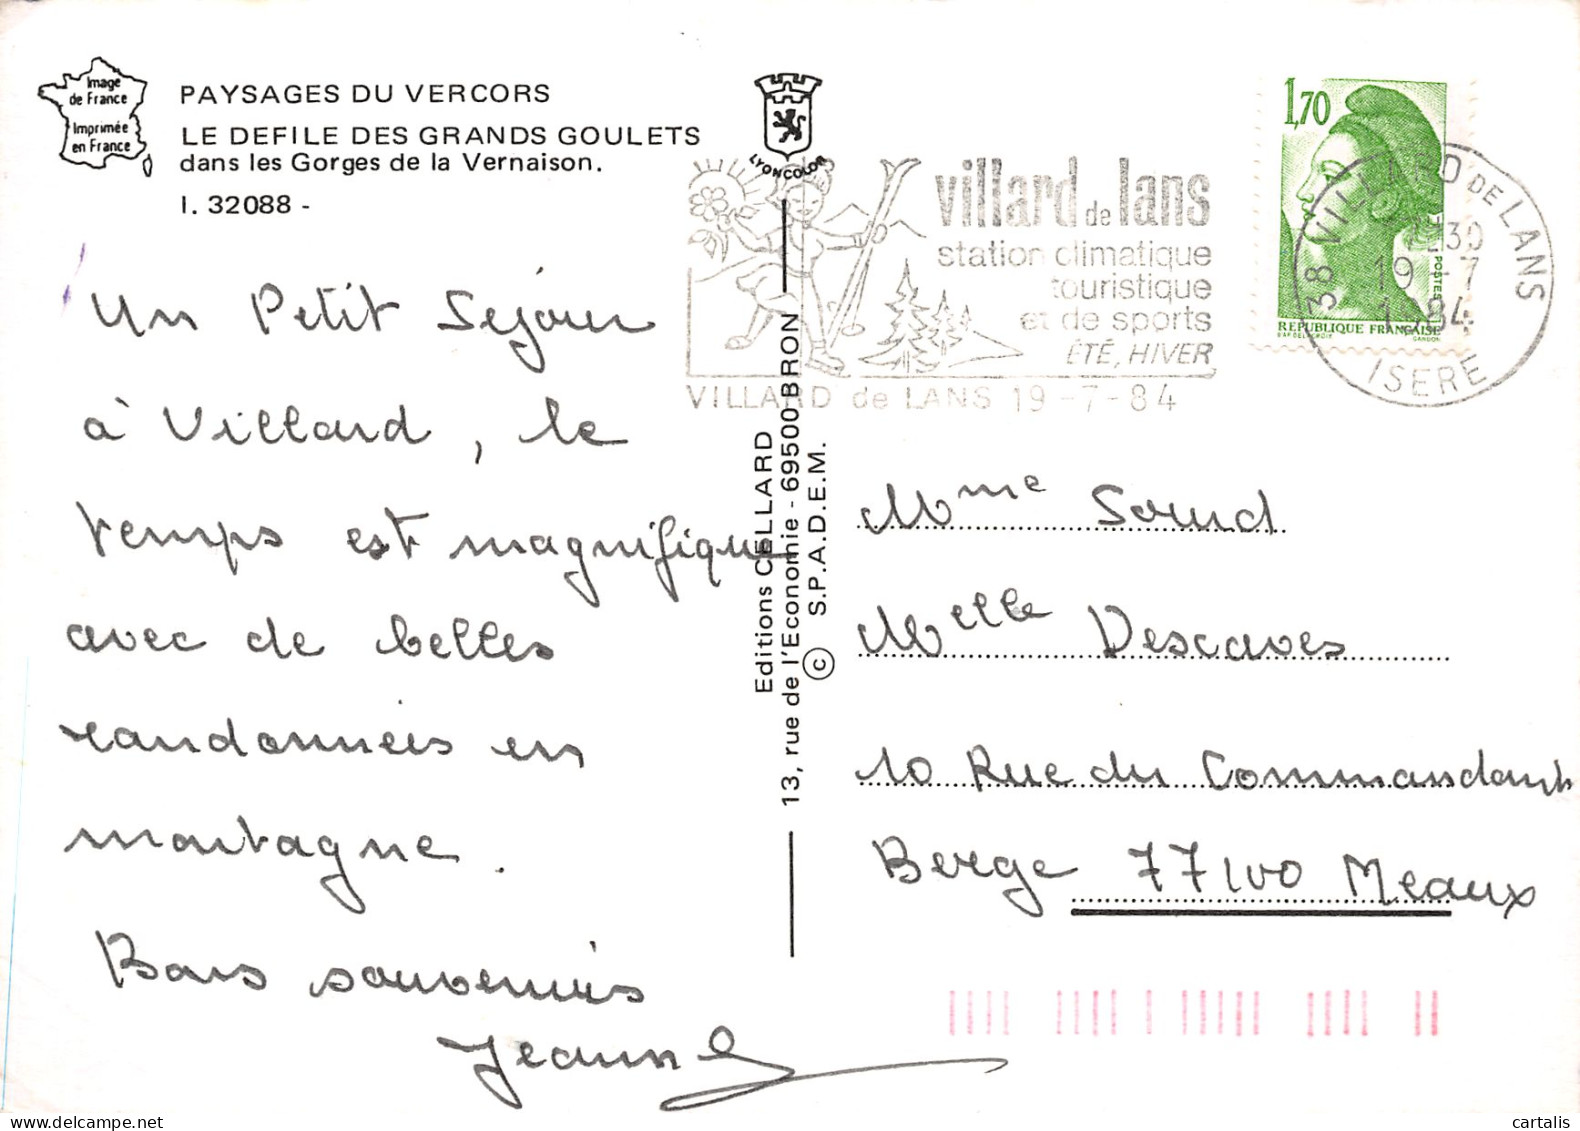 Image
de France
Imprimée
en France
PAYSAGES DU VERCORS
LE DEFILE DES GRANDS GOULETS
dans les Gorges de la Vernaison.
I. 32088 -
LYONCOLOR
villard de lans
station climatique
touristique
et de sports
ÉTÉ, HIVER
VILLARD de LANS 19-7-84
1,70
POSTES
REPUBLIQUE FRANÇAISE
GANDON
38 VILLARD DE LANS
19 -7
1984
ISERE
Un Petit Séjour
à Villard, le
temps est magnifique
avec de belles
randonnées en
montagne.
Bons souvenirs
Jeanne
Editions CELLARD
13, rue de l'Economie - 69500 BRON
© S.P.A.D.E.M.
Mme
Melle Descaves
10 Rue du Commandant
Berge 77100 Meaux
cartalis